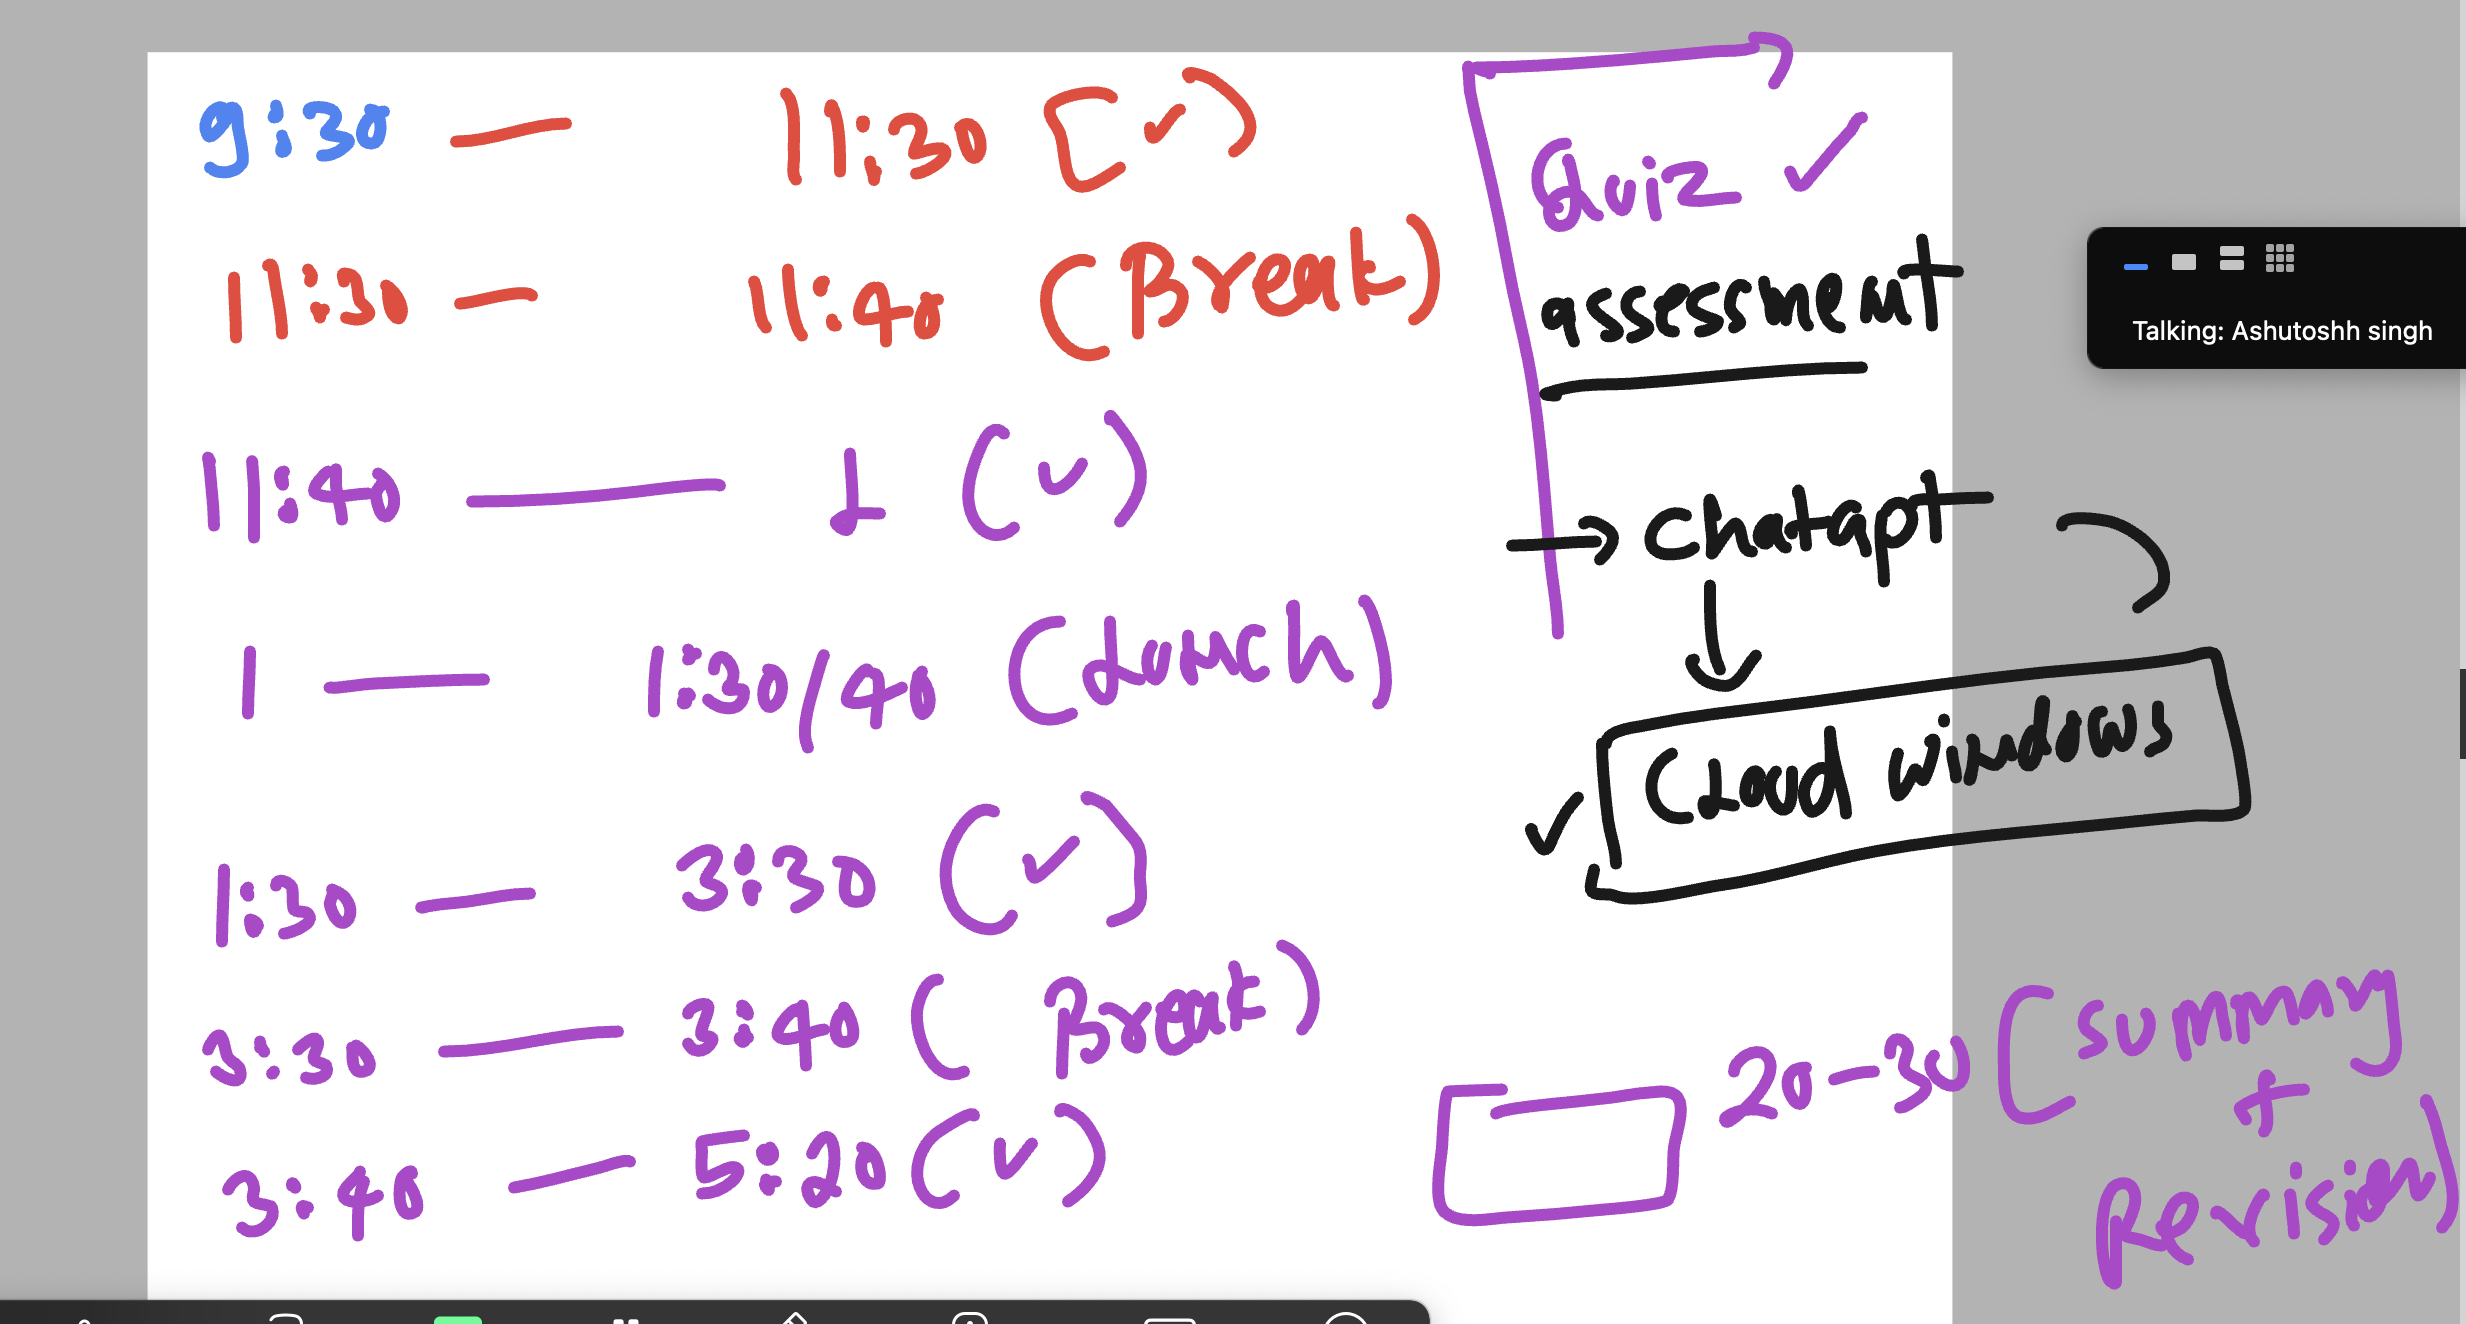 9:30 — 11:30 [✓)
11:30 — 11:40 (Break)
11:40 — 1 (✓)
1 — 1:30/40 (Lunch)
1:30 — 3:30 (✓)
3:30 — 3:40 (Break)
3:40 — 5:20 (✓)
Quiz ✓
assessment
→ Chatgpt
↓
✓ Cloud windows
20-30 (summary
+
Revision)
Talking: Ashutoshh singh